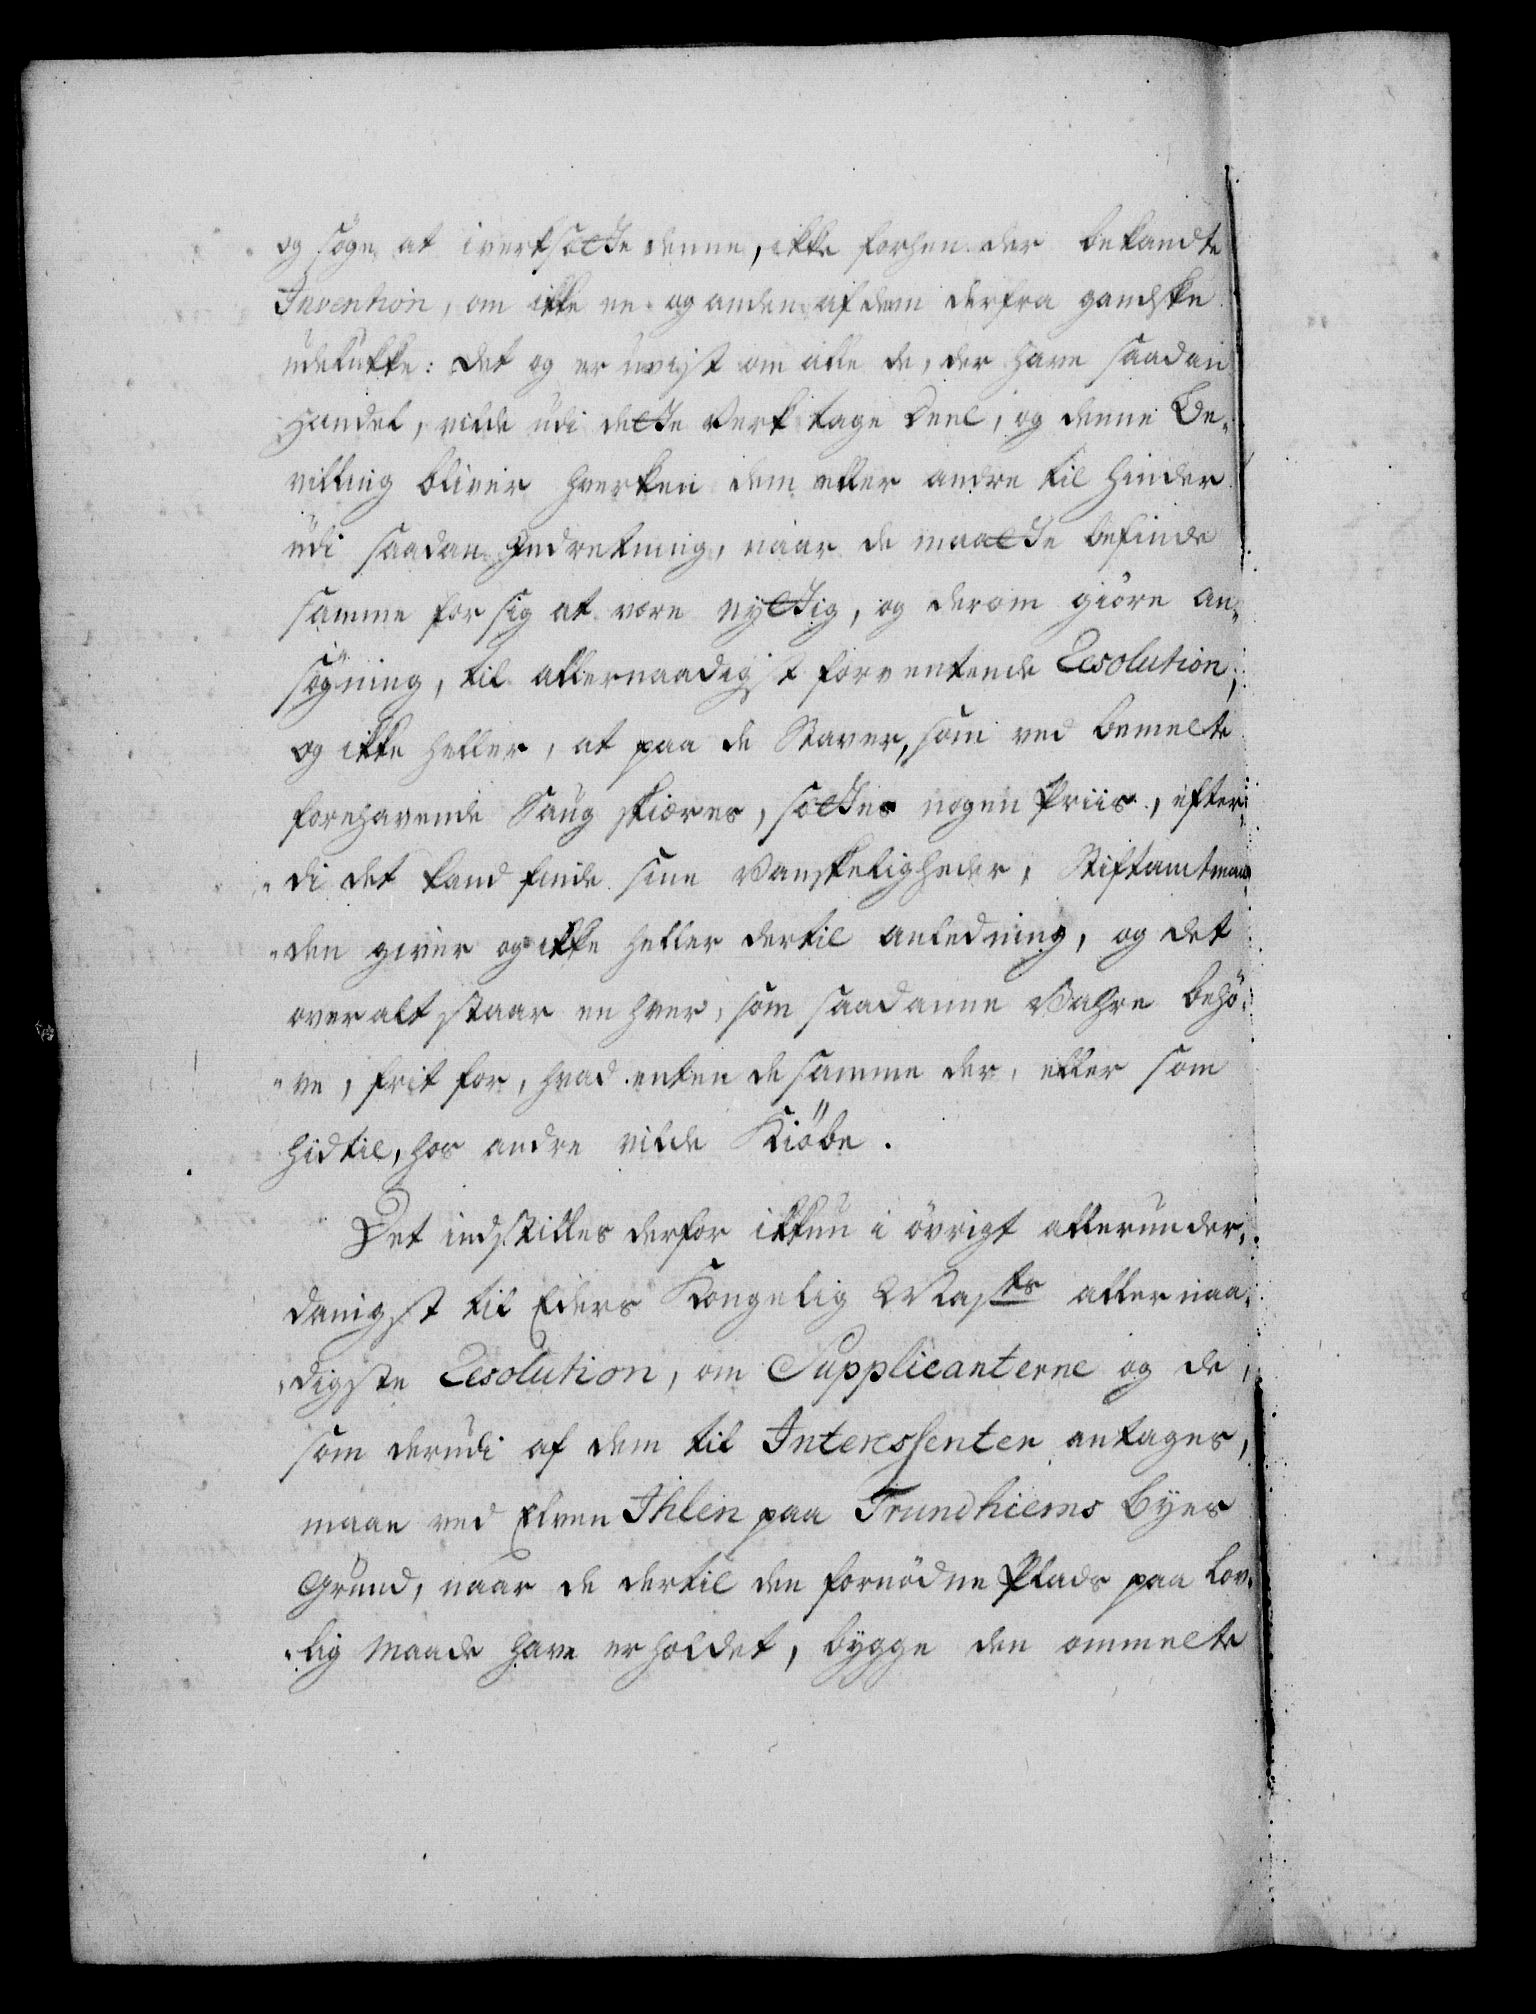 og søge at iverksætte denne, ikke forhen der bekandte
Invention, om ikke een og anden af dem derfra gandske
udelukke: Det og er uvist om alle de, der have saadan
Handel, vilde udi dette Verk tage Deel, og denne Be-
villing bliver hverken dem eller andre til Hinder
udi saadan Indretning, naar de maatte befinde
samme for sig at være nyttig, og derom giøre An-
søgning, til allernaadigst forventende Resolution,
og ikke heller, at paa de Staver, som ved bemelte
forehavende Saug skiæres, sættes nogen Priis, efter-
di det kand finde sine Vanskeligheder, Stiftamtman-
den giver og ikke heller dertil Anledning, og det
over alt staar en hver, som saadanne Vahre behø-
ve, frit for, hvad enten de samme der, eller som
hidtil, hos andre vilde Kiøbe.
Det indstilles derfor ikkun i øvrigt allerunder-
danigst til Eders Kongelig Mayts allernaa-
digste Resolution, om Supplicanterne og de
som derudi af dem til Interessenter antages,
maae ved Elven Ihlen paa Trundhiems Byes
Grund, naar de dertil den fornødne Plads paa lov-
lig Maade have erholdet, bygge den ommelte